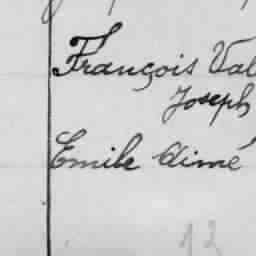 François Val
Joseph
Emile Aimé
12